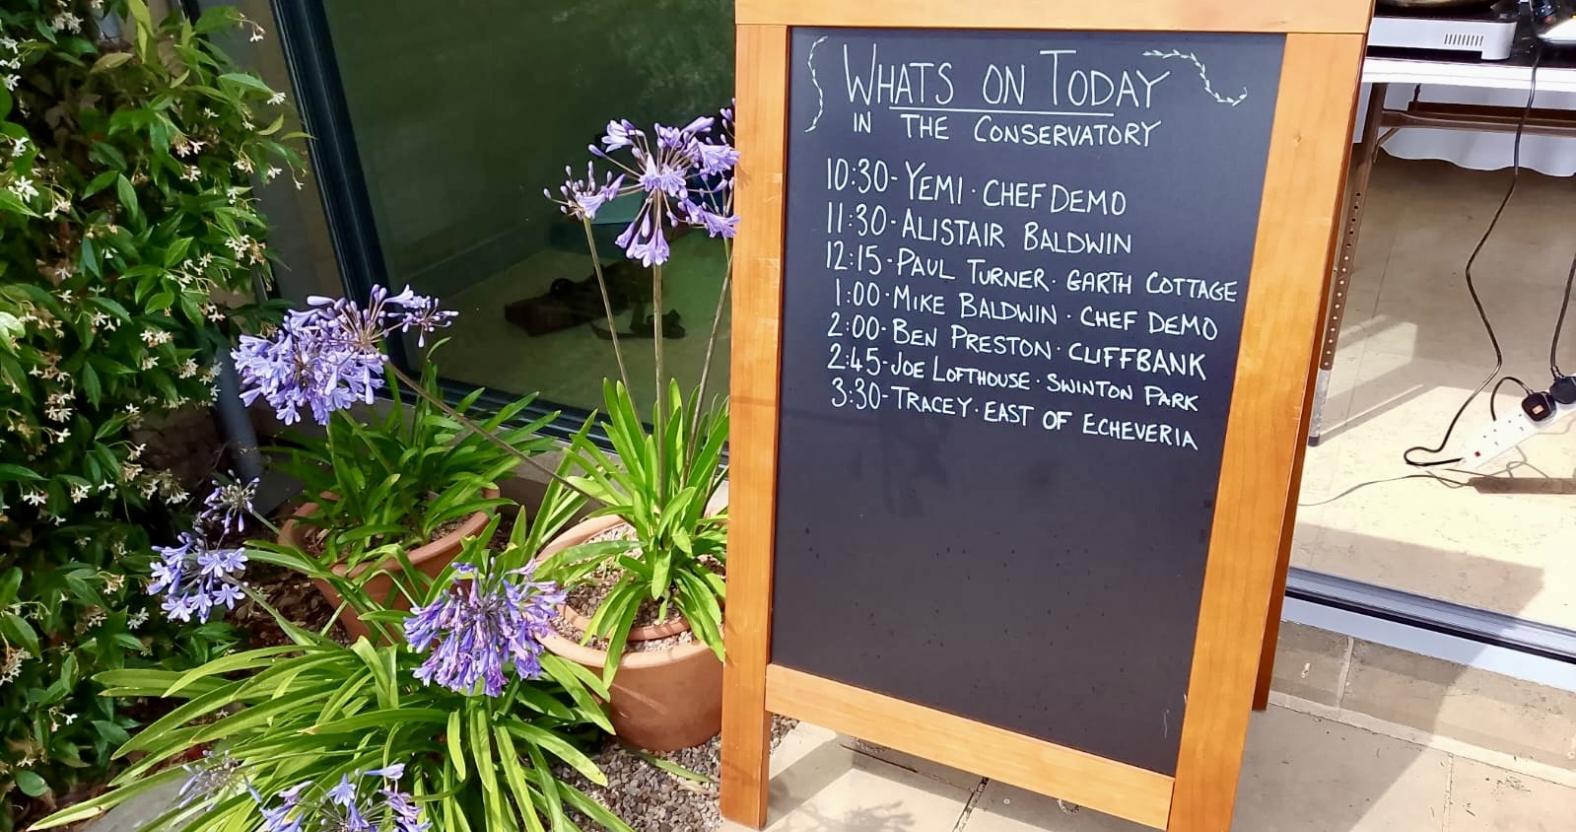 WHATS ON TODAY
IN THE CONSERVATORY
10:30-YEMI · CHEF DEMO
11:30-ALISTAIR BALDWIN
12:15-PAUL TURNER · GARTH COTTAGE
1:00-MIKE BALDWIN · CHEF DEMO
2:00-BEN PRESTON · CLIFFBANK
2:45-JOE LOFTHOUSE · SWINTON PARK
3:30-TRACEY · EAST OF ECHEVERIA